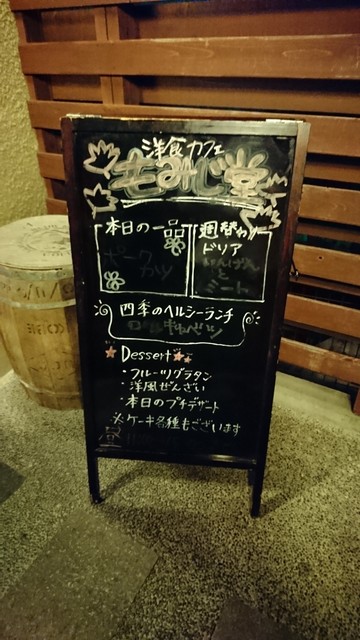 洋食カフェ
もみじ堂
本日の一品
ポークカツ
週替カレー
ドリア
と
ミート
四季のヘルシーランチ
ロールキャベツ
Dessert
・フルーツグラタン
・洋風ぜんざい
・本日のプチデザート
※ケーキ各種もございます